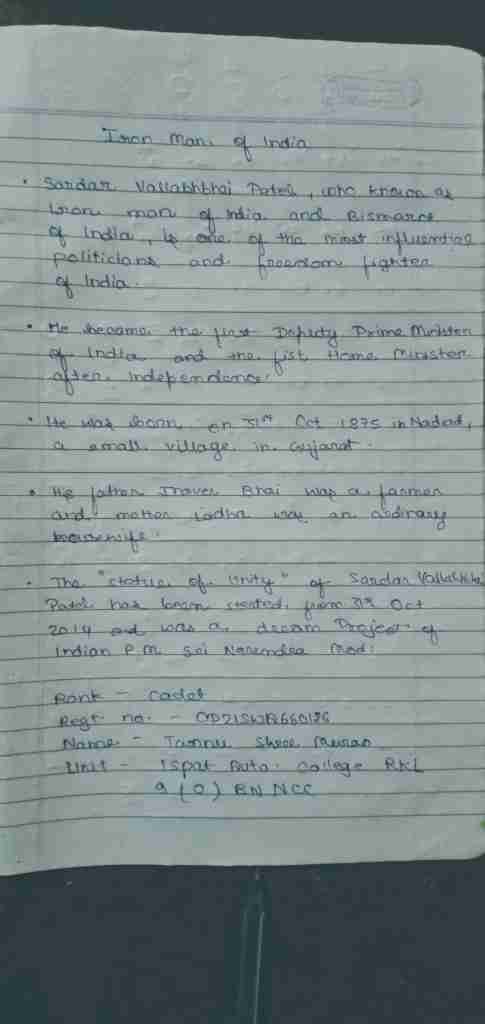 Iron Man of India
• Sardar Vallabhbhai Patel, who known as
Iron man of India and Bismarc
of India, is one of the most influential
politicians and freedom fighter
of India.
• He became the first Deputy Prime Minister
of India and the fist Home Minister
after independence.
• He was born on 31st Oct 1875 in Nadiad,
a small village in Gujarat.
• His father Jhaver Bhai was a farmer
and mother Ladba was an ordinary
housewife.
• The "statue of Unity" of Sardar Vallabhbhai
Patel has been created from 31st Oct
2014 and was a dream Project of
Indian P.M. Sri Narendra Modi
Rank - Cadet
Regt no. -
Name - Tannu Shree
Unit - Ispat Auto. College RKL
9 (O) BN NCC